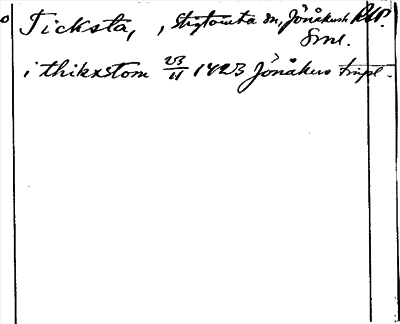 Ticksta, , Stigtomta sn, Jönåkers
Sml.
i thikxstom 23/11 1423 Jönåkers